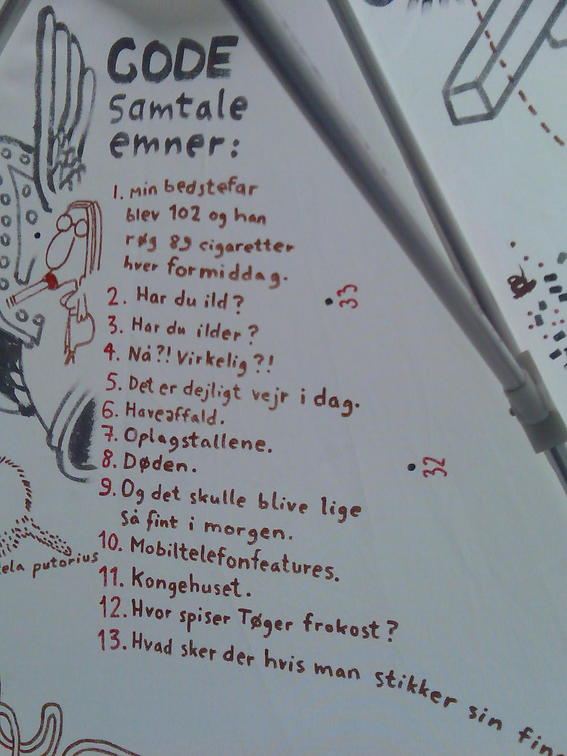 GODE
samtale
emner:
1. Min bedstefar
blev 102 og han
røg 89 cigaretter
hver formiddag.
2. Har du ild?
33
3. Har du ilder?
4. Nå?! Virkelig?!
5. Det er dejligt vejr i dag.
6. Haveaffald.
7. Oplagstallene.
8. Døden.
32
9. Og det skulle blive lige
så fint i morgen.
10. Mobiltelefonfeatures.
ela putorius
11. Kongehuset.
12. Hvor spiser Tøger frokost?
13. Hvad sker der hvis man stikker sin fin